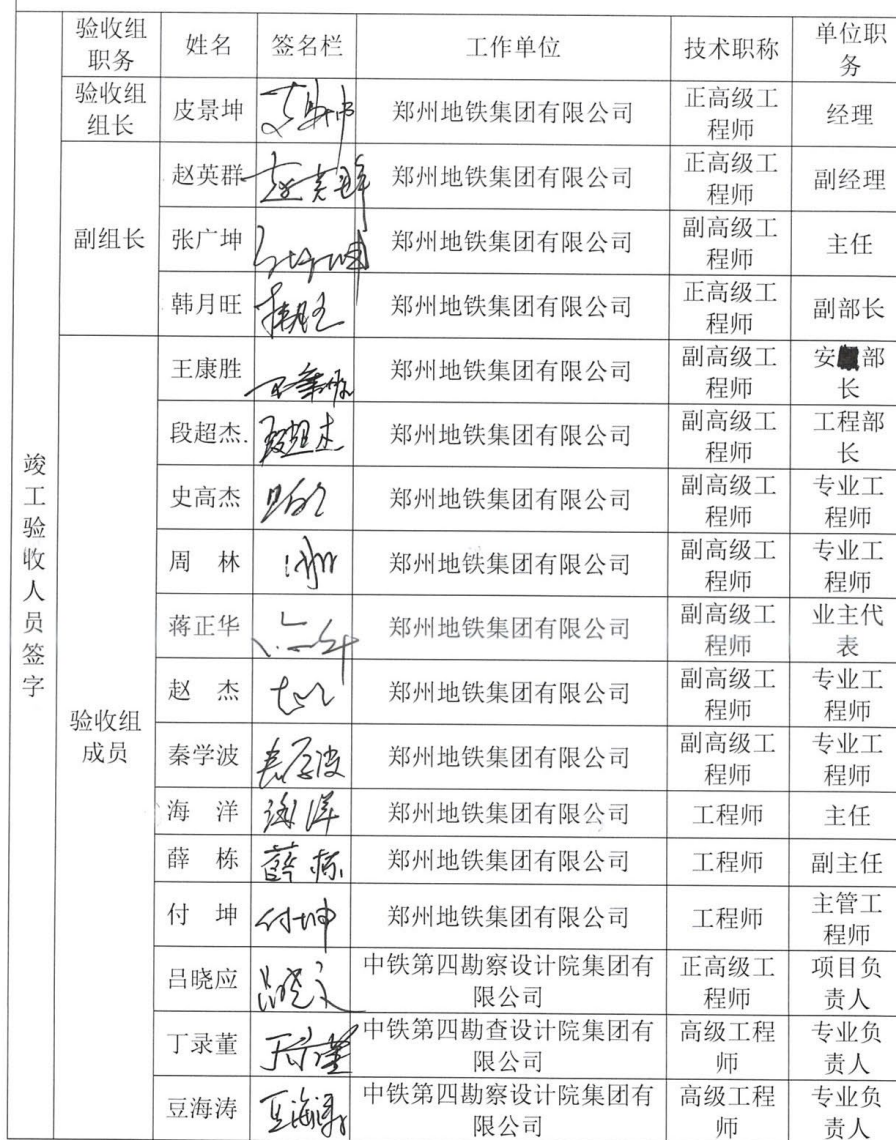 竣工验收人员签字
验收组职务 姓名 签名栏 工作单位 技术职称 单位职务
验收组组长 皮景坤 郑州地铁集团有限公司 正高级工程师 经理
副组长 赵英群 赵英群 郑州地铁集团有限公司 正高级工程师 副经理
张广坤 郑州地铁集团有限公司 副高级工程师 主任
韩月旺 韩月旺 郑州地铁集团有限公司 正高级工程师 副部长
验收组成员 王康胜 郑州地铁集团有限公司 副高级工程师 安部长
段超杰. 段超杰 郑州地铁集团有限公司 副高级工程师 工程部长
史高杰 郑州地铁集团有限公司 副高级工程师 专业工程师
周 林 郑州地铁集团有限公司 副高级工程师 专业工程师
蒋正华 郑州地铁集团有限公司 副高级工程师 业主代表
赵 杰 郑州地铁集团有限公司 副高级工程师 专业工程师
秦学波 秦学波 郑州地铁集团有限公司 副高级工程师 专业工程师
海 洋 海洋 郑州地铁集团有限公司 工程师 主任
薛 栋 薛栋 郑州地铁集团有限公司 工程师 副主任
付 坤 付坤 郑州地铁集团有限公司 工程师 主管工程师
吕晓应 中铁第四勘察设计院集团有限公司 正高级工程师 项目负责人
丁录董 中铁第四勘查设计院集团有限公司 高级工程师 专业负责人
豆海涛 豆海涛 中铁第四勘察设计院集团有限公司 高级工程师 专业负责人